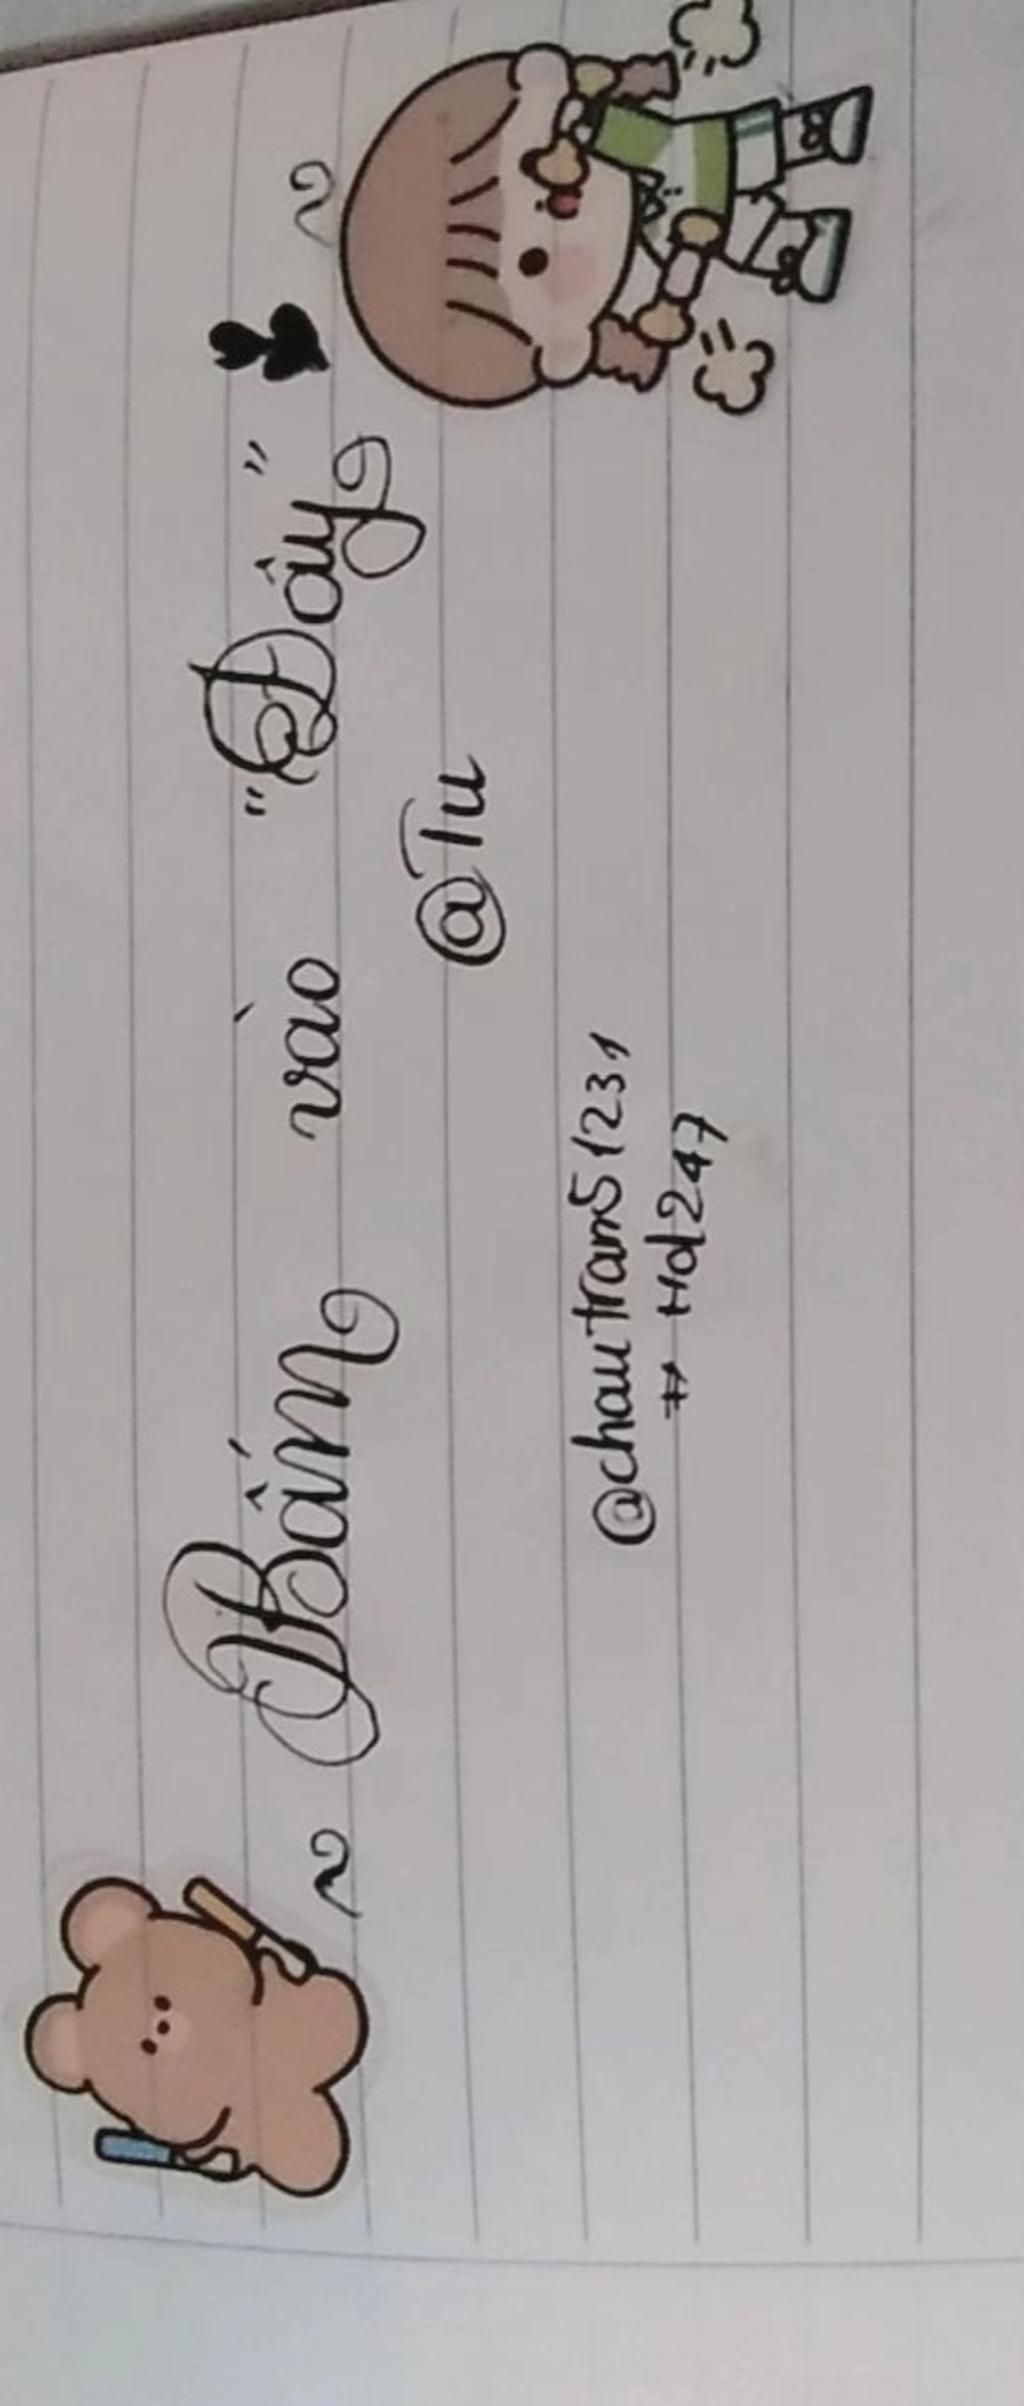 ~ Bấm vào "Đây" ~
@Tu
@chautram51231
# Hd247